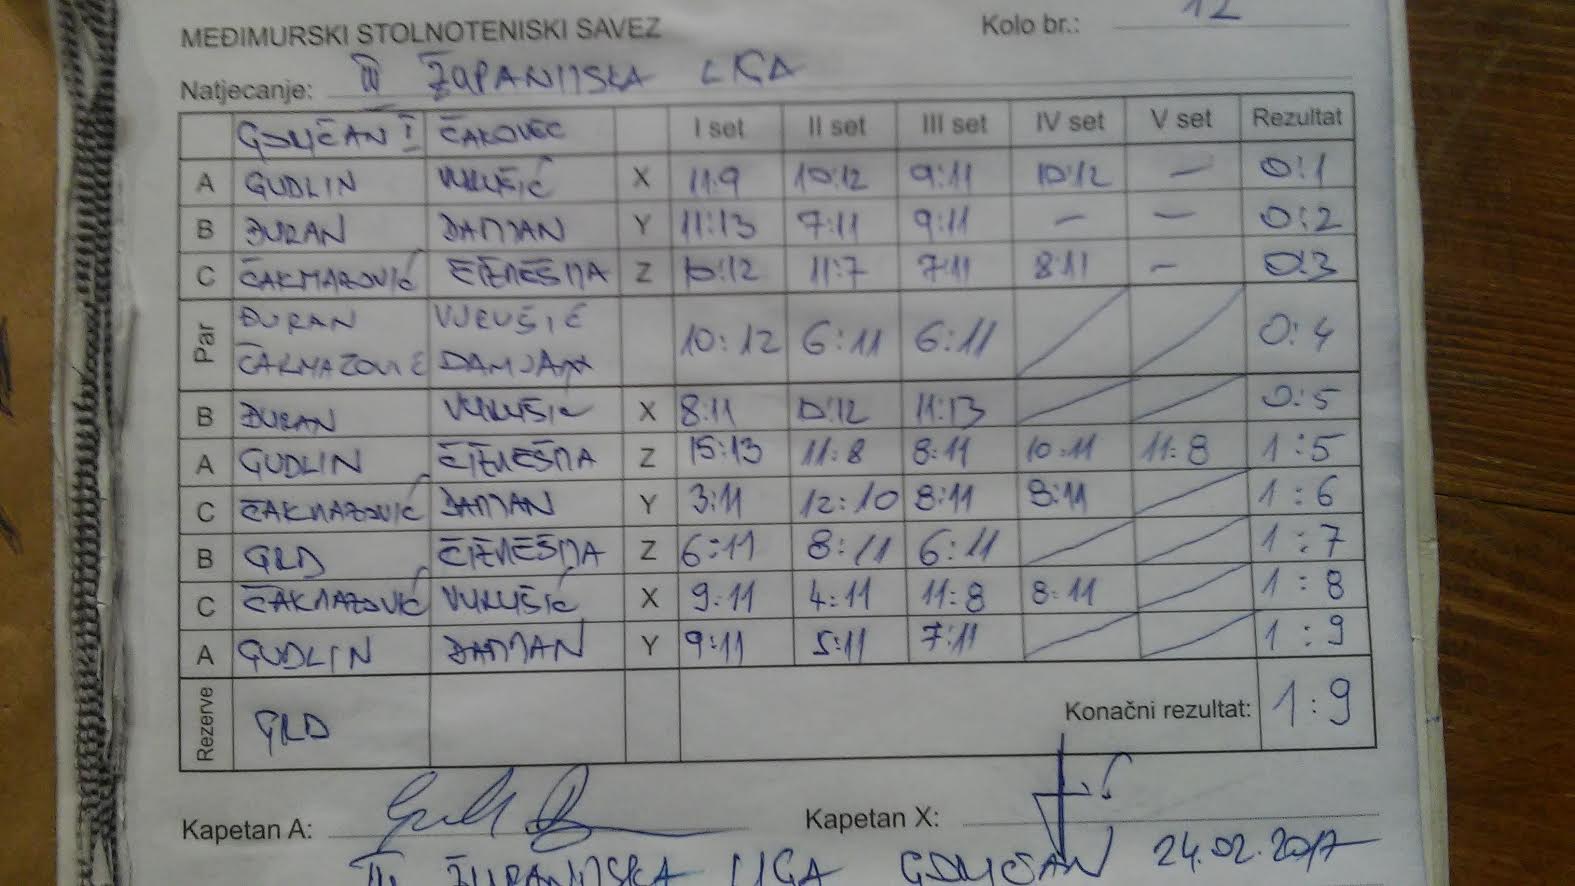 MEĐIMURSKI STOLNOTENISKI SAVEZ Kolo br.: 12
Natjecanje: III ŽUPANIJSKA LIGA
GORIČAN I ČAKOVEC I set II set III set IV set V set Rezultat
A GUDLIN VUKUŠIĆ X 11:9 10:12 9:11 10:12 — 0:1
B ĐURAN DAMJAN Y 11:13 7:11 9:11 — — 0:2
C ČAKMAZOVIĆ Z 10:12 11:7 7:11 8:11 — 0:3
Par ĐURAN VUKUŠIĆ 10:12 6:11 6:11 0:4
ČAKMAZOVIĆ DAMJAN
B ĐURAN VUKUŠIĆ X 8:11 10:12 11:13 0:5
A GUDLIN Z 15:13 11:8 8:11 10:11 11:8 1:5
C ČAKMAZOVIĆ DAMJAN Y 3:11 12:10 8:11 9:11 1:6
B GRD Z 6:11 8:11 6:11 1:7
C ČAKMAZOVIĆ VUKUŠIĆ X 9:11 4:11 11:8 8:11 1:8
A GUDLIN DAMJAN Y 9:11 5:11 7:11 1:9
Rezerve GRD Konačni rezultat: 1:9
Kapetan A: Kapetan X:
III ŽUPANIJSKA LIGA GORIČAN 24.02.2017